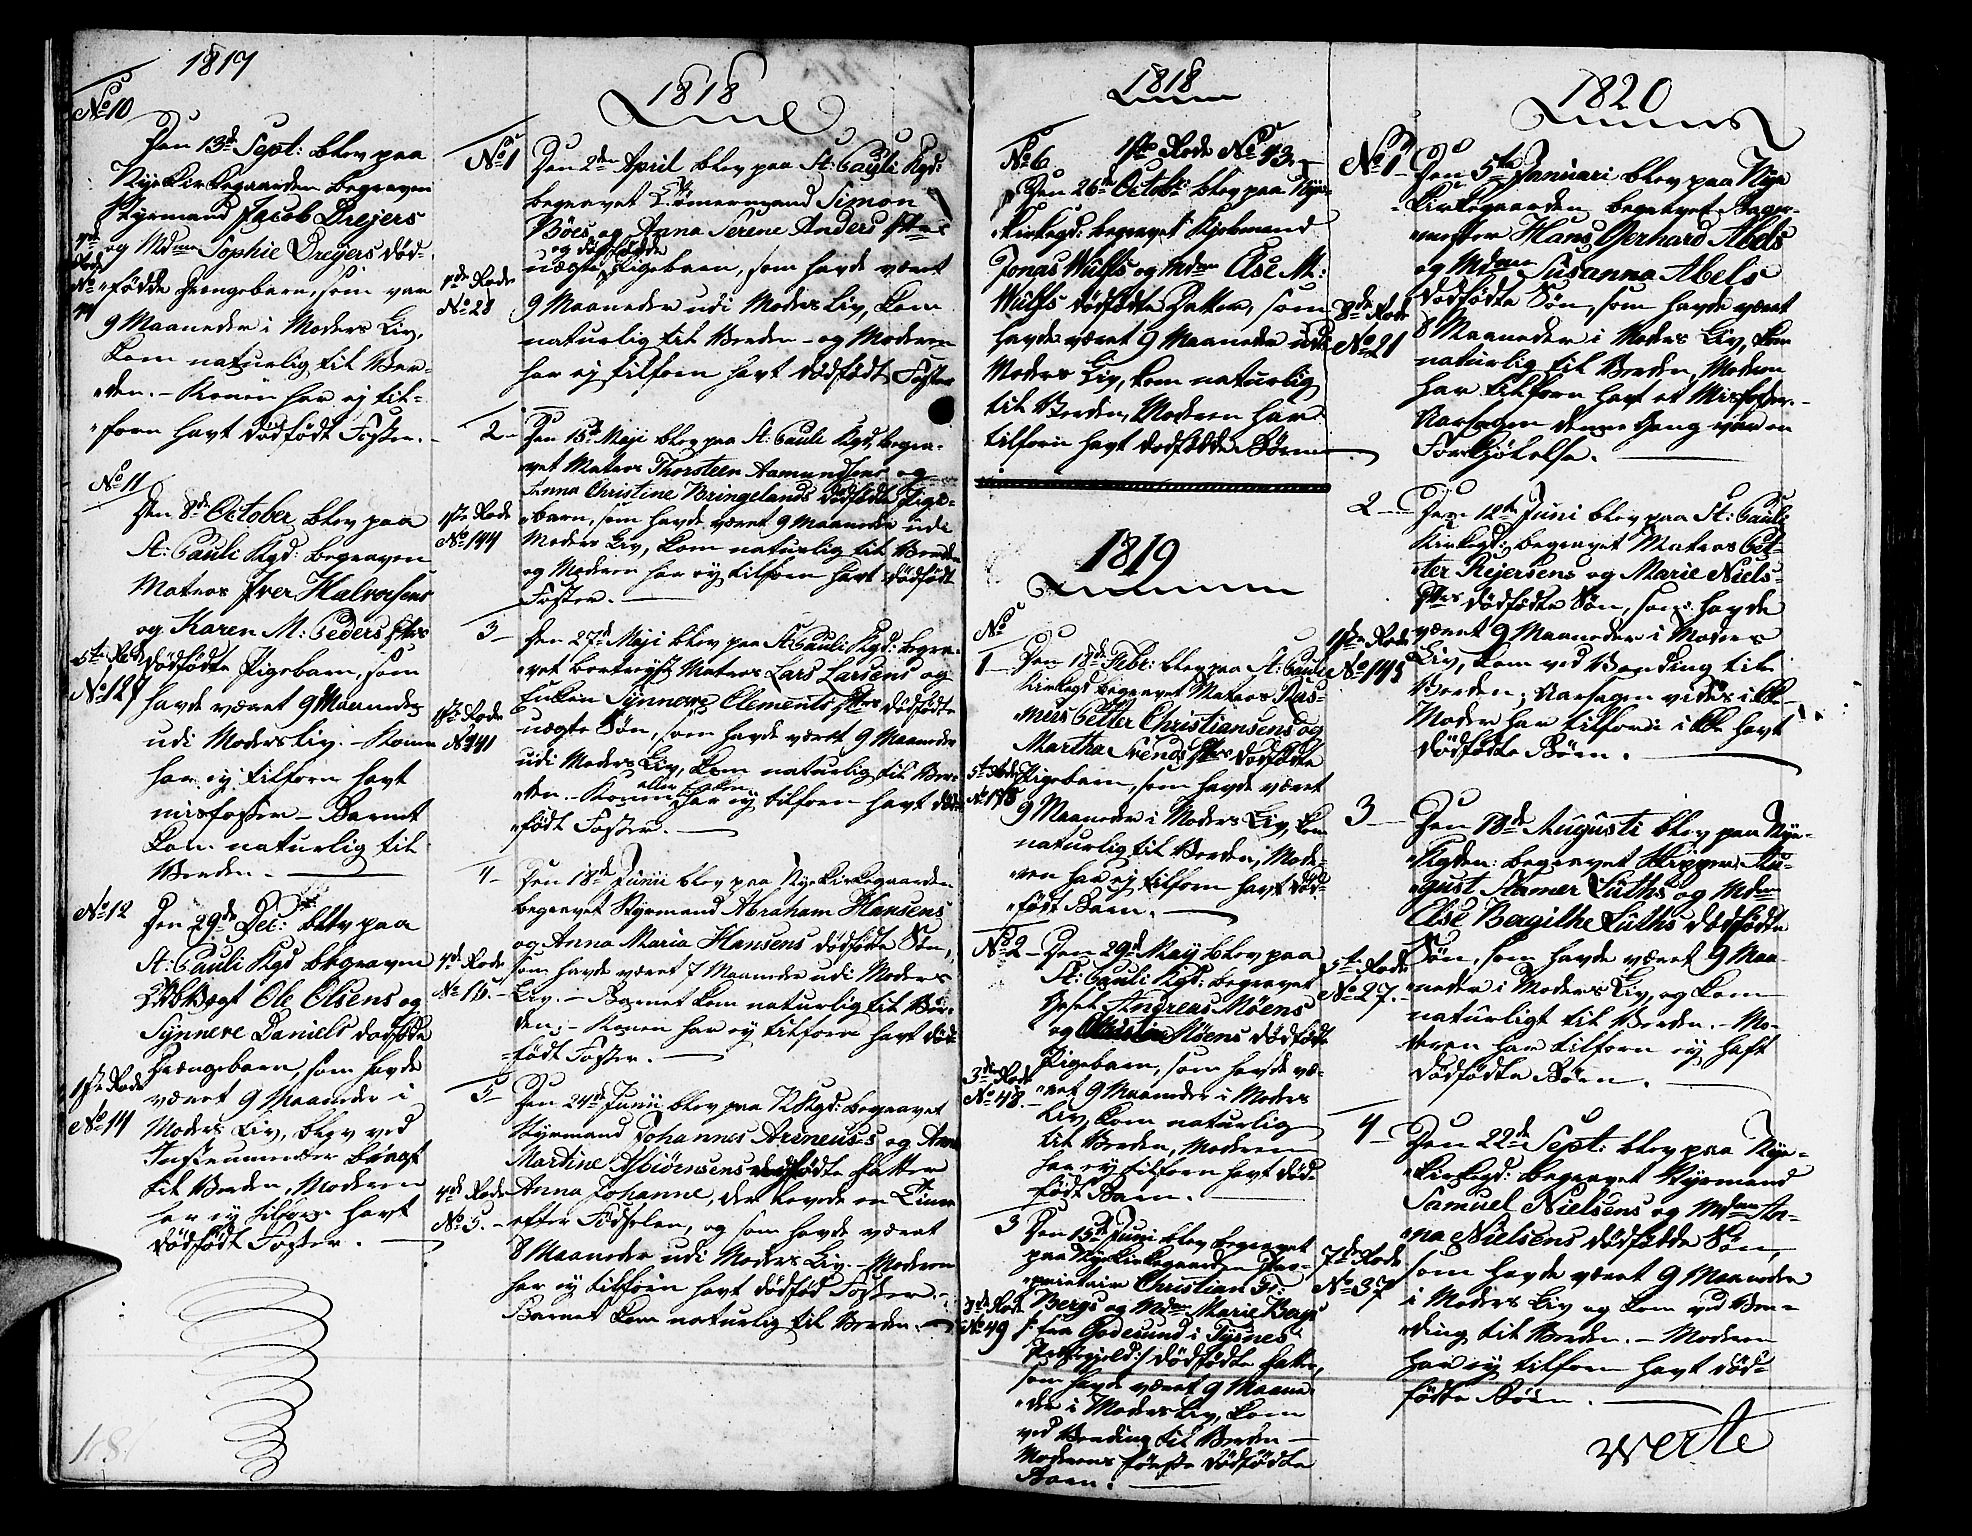 1817
No 10
Den 13de Sept: blev paa
Nyekirkegaarden begraven
Styrmand Jacob Drejers
og Mdme Sophie Drejers død-
fødde Drengebarn, som var
9 Maaneder i Moders Liv,
kom naturlig til Ver-
den. - Konen har ej til-
forn havt dødfødt Foster.
No 11
Den 8de October blev paa
St: Pauli Kgd: begraven
Matros Iver Halvorsens
og Karen M: Peders
5te Rode
No 127
dødfødte Pigebarn, som
havde været 9 Maaneder
udi Moders Liv. - Konen
har ej tilforn havt
misfoster - Barnet
kom naturlig til
Verden.
No 12
Den 29de Dec: blev paa
St: Pauli Kgd begraven
Ole Olsens og
Synneve Daniels dødfødde
Drengebarn, som havde
1ste Rode
No 14
været 9 Maaneder i
Moders Liv, blev ved
Instrumenter bragt
til Verden, Moderen
har ej tilforn havt
dødfødt Foster.
1818
No 1
Den 2den April blev paa St: Pauli Kgd:
begravet Tømermand Simon
Børes og Anna Serene Anders
og dødfødde
uægte Pigebarn, som havde været
7de Rode
No 28
9 Maaneder udi Moders Liv, kom
naturlig til Verden - og Moderen
har ej tilforn havt dødfødt Foster
2
Den 15de Maji blev paa St: Pauli Kgd. begra-
vet Matros Thorsteen Aamundsens og
Anna Christine Bringelands dødfødte Pige-
1ste Rode
No 144
barn, som havde været 9 Maaneder udi
Moders Liv, kom naturlig til Verden
og Moderen har ej tilforn havt dødfødt
Foster.
3
Den 27de Maji blev paa St: Pauli Kgd: begra-
vet bortrejst Matros Lars Larsens og
Enken Synneve Clements dødfødte
1ste Rode
No 141
uægte Søn, som havde været 9 Maaneder
udi Moders Liv, kom naturlig til Ver-
den. - Konen eller Enken har ej tilforn havt død-
født Foster.
4
Den 18de Junii blev paa Nyekirkegaarden
begravet Styrmand Abraham Hansens
og Anna Maria Hansens dødfødte Søn,
7de Rode
som havde været 7 Maaneder udi Moders
Liv. - Barnet kom naturlig til Ver-
den; - Konen har ej tilforn havt død-
født Foster.
5
Den 24de Junii blev paa N Kgd: begravet
Styrmand Johannes Areneus's og Anne
Martine Asbiørnsens dødfødte Datter
4de Rode
No 5.
Anna Johanne, der levede en Time
efter Fødselen, og som havde været
8 Maaneder udi Moders Liv. - Moderen
har ej tilforn havt dødfød Foster. -
Barnet kom naturlig til Verden.
1818
No 6
1ste Rode No 43.
Den 26de Octobr: blev paa Nye
Kirkegd: begravet Kjøbmand
Jonas Wulfs og Mdme Else M:
Wulfs dødfødte Datter, som
havde været 9 Maaneder udi
Moders Liv, kom naturlig
til Verden, Moderen har
tilforn havt dødfødde Børn
1819
No
1
Den 18de Febr: blev paa St: Pauli
Kirkegd begravet Matros Ras-
mus Petter Christiansens og
Martha Svends dødfødte
5te Rode
Pigebarn, som havde været
9 Maaneder i Moders Liv, kom
naturlig til Verden, Mode-
ren har ej tilforn havt død-
født Barn.
No 2
Den 29de May blev paa
St: Pauli Kgd: begravet
Andreas Møens
og Christine Møens dødfødt
3de Rode
No 48.
Pigebarn, som havde væ-
ret 9 Maaneder i Moders
Liv, kom naturlig
til Verden, Moderen
har ej tilforn havt død-
født Barn.
3
Den 15de Junii blev begravet
paa Nyekirkegaarden Pro-
prietair Christian Fr:
3de Rode
No 49
Bergs og Mdme Marie Bergs
fra Godesund i Tysnes
Præstegjeld dødfødte Datter,
som havde været 9 Maane-
der i Moders Liv, kom
ved Vending til Verden
Moderens første dødfødte
Barn.
1820
No 1
Den 5te Januari blev paa Nye
Kirkegaarden begravet Bager-
mester Hans Gerhard Abels
og Mdme Susanna Abels
8de Rode
No 21
dødfødte Søn, som havde været
8 Maaneder i Moders Liv, kom
naturlig til Verden, Moderen
har tilforn havt et Misfoster. -
Aarsagen denne Gang var en
Forskjøkelse.
2
Den 12te Juni blev paa St: Pauli
Kirkegd: begravet Matros Pet-
ter Rejersens og Marie Niels-
dødfødte Søn, som havde
1ste Rode
No 145
været 9 Maaneder i Moders
Liv, kom ved Vending til
Verden; Aarsagen vides ikke
Moder har tilforn ikke havt
dødfødte Børn.
3
Den 18de Augusti blev paa Nye-
Kgden: begravet Skipper Au-
gust Aamer Lüths og Mdme
Else Bergithe Lüths dødfødte
5te Rode
No 27.
Søn, som havde været 9 Maa-
neder i Moders Liv, og kom
naturligt til Verden. - Mo-
deren har tilforn ej haft
dødfødte Børn.
4
Den 22de Sept: blev paa Nye-
Kirkegd: begravet Styrmand
Samuel Nielsens og Mdme An-
na Nielsens dødfødde Søn,
7de Rode
No 37
som havde været 9 Maaneder
i Moders Liv og kom ved Ven-
ding til Verden. - Moderen
har ej tilforn havt død-
fødte Børn.
verte